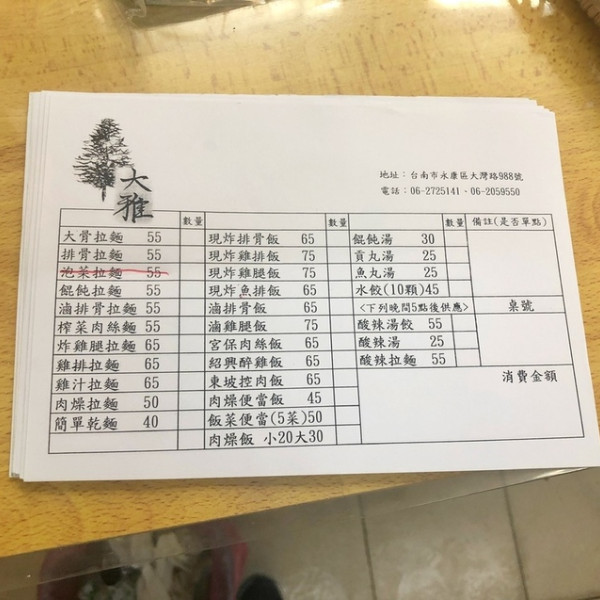 大雅
地址：台南市永康區大灣路988號
電話：06-2725141、06-2059550
數量 數量 數量 備註(是否單點)
大骨拉麵 55 現炸排骨飯 65 餛飩湯 30
排骨拉麵 55 現炸雞排飯 75 貢丸湯 25
泡菜拉麵 55 現炸雞腿飯 75 魚丸湯 25
餛飩拉麵 55 現炸魚排飯 65 水餃(10顆)45
滷排骨拉麵 55 滷排骨飯 65 <下列晚間5點後供應> 桌號
榨菜肉絲麵 55 滷雞腿飯 75 酸辣湯餃 55
炸雞腿拉麵 65 宮保肉絲飯 65 酸辣湯 25
雞排拉麵 65 紹興醉雞飯 65 酸辣拉麵 55
雞汁拉麵 65 東坡控肉飯 65 消費金額
肉燥拉麵 50 肉燥便當飯 45
簡單乾麵 40 飯菜便當(5菜)50
肉燥飯 小20大30